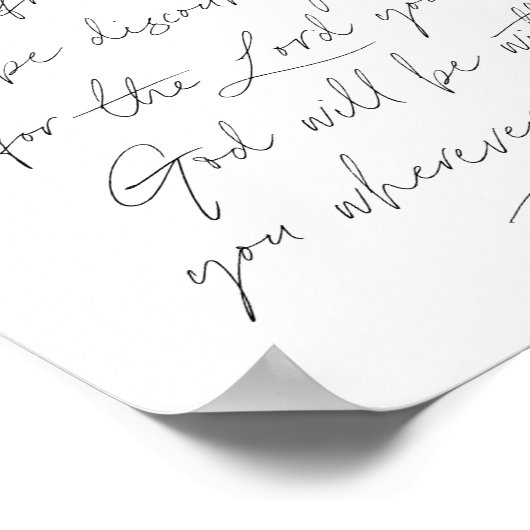 be discou
for the Lord yo
God will be wi
you whereve